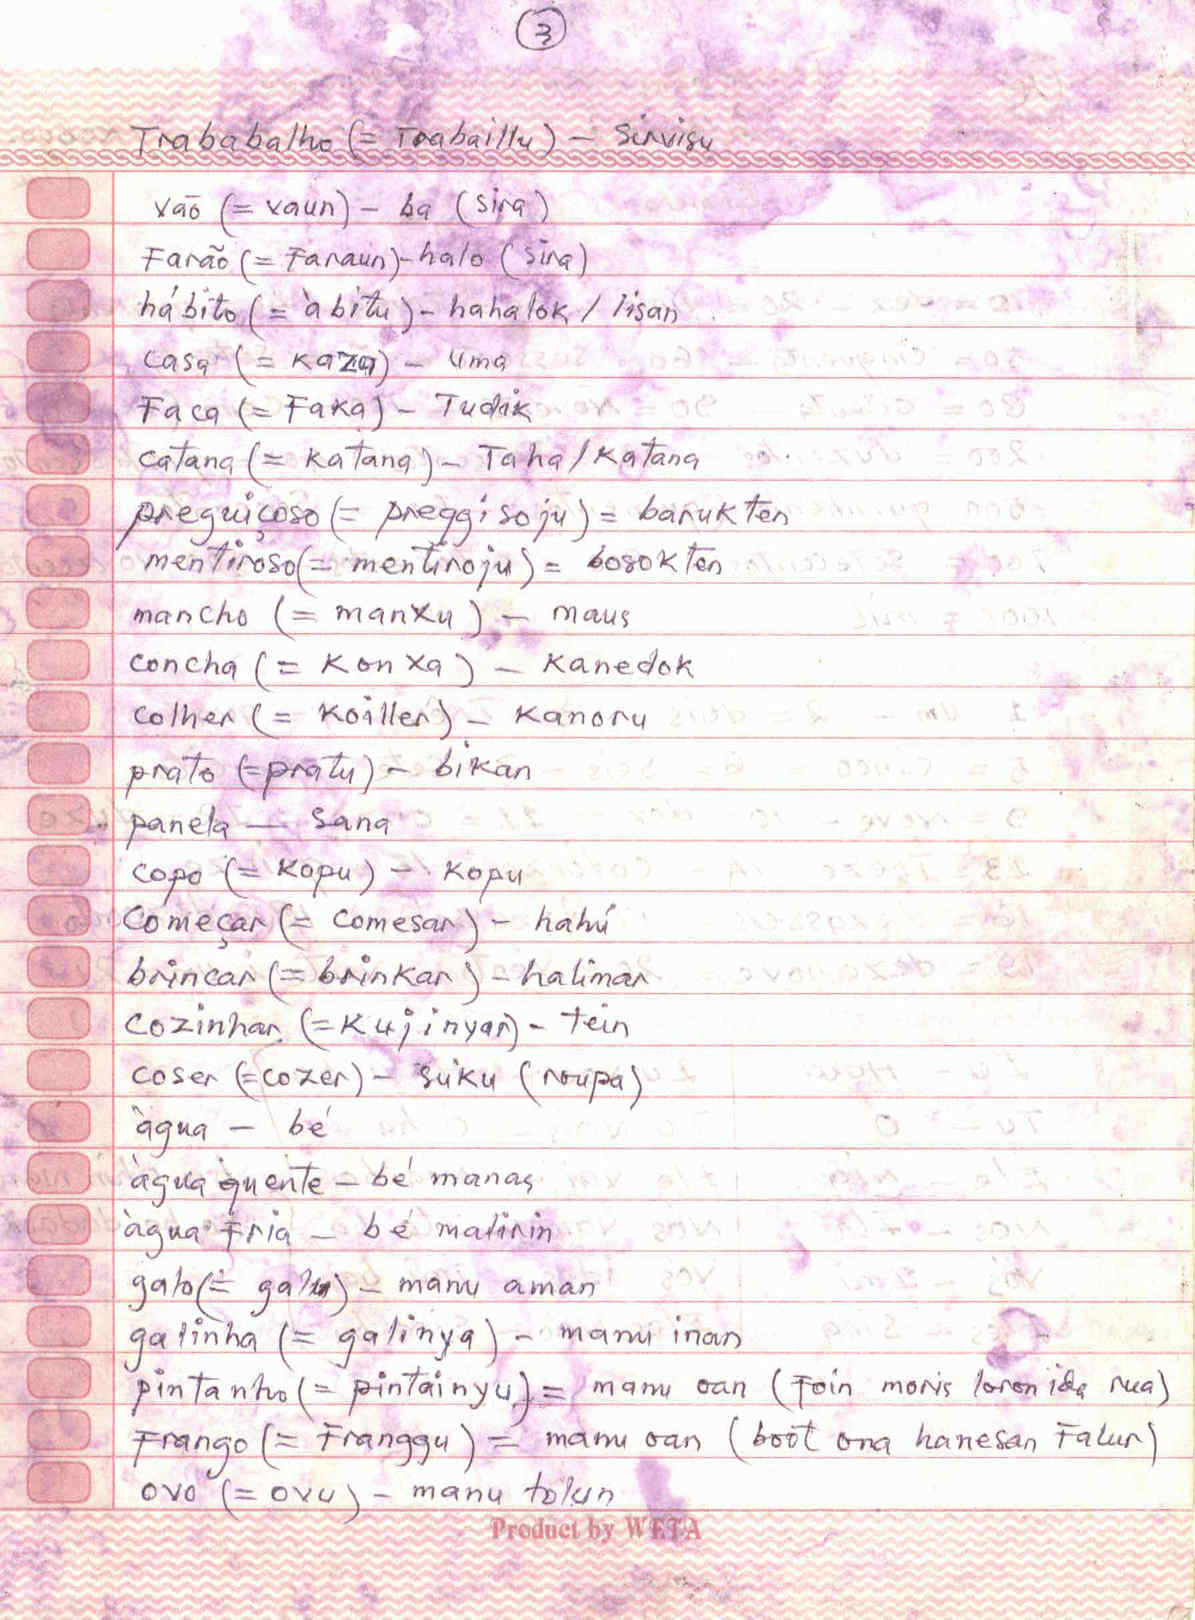 3
Trababalho (= Trabaillu) - Sirvisu
vão (= vaun) - ba (sira)
Farão (= Faraun) - halo (sira)
hábito (= àbitu) - hahalok / lisan
casa (= kaza) - uma
Faca (= Faka) - Tudik
catana (= katana) - Taha / Katana
preguiçoso (= preggisoju) = barukten
mentiroso (= mentiroju) = bosokten
mancho (= manxu) - maus
concha (= Konxa) - Kanedok
colher (= Koiller) - Kanoru
prato (= pratu) - bikan
panela - Sana
copo (= Kopu) - Kopu
Começar (= comesar) - hahú
brincar (= brinkar) - halimar
cozinhar (= Kujinyar) - tein
coser (= cozer) - suku (roupa)
àgua - bé
àgua quente - bé manas
àgua Fria - bé malirin
galo (= galu) - manu aman
galinha (= galinya) - manu inan
pintanho (= pintainyu) = manu oan (Foin moris loron ida rua)
Frango (= Franggu) = manu oan (boot ona hanesan Falur)
ovo (= ovu) - manu tolun
Product by WETA